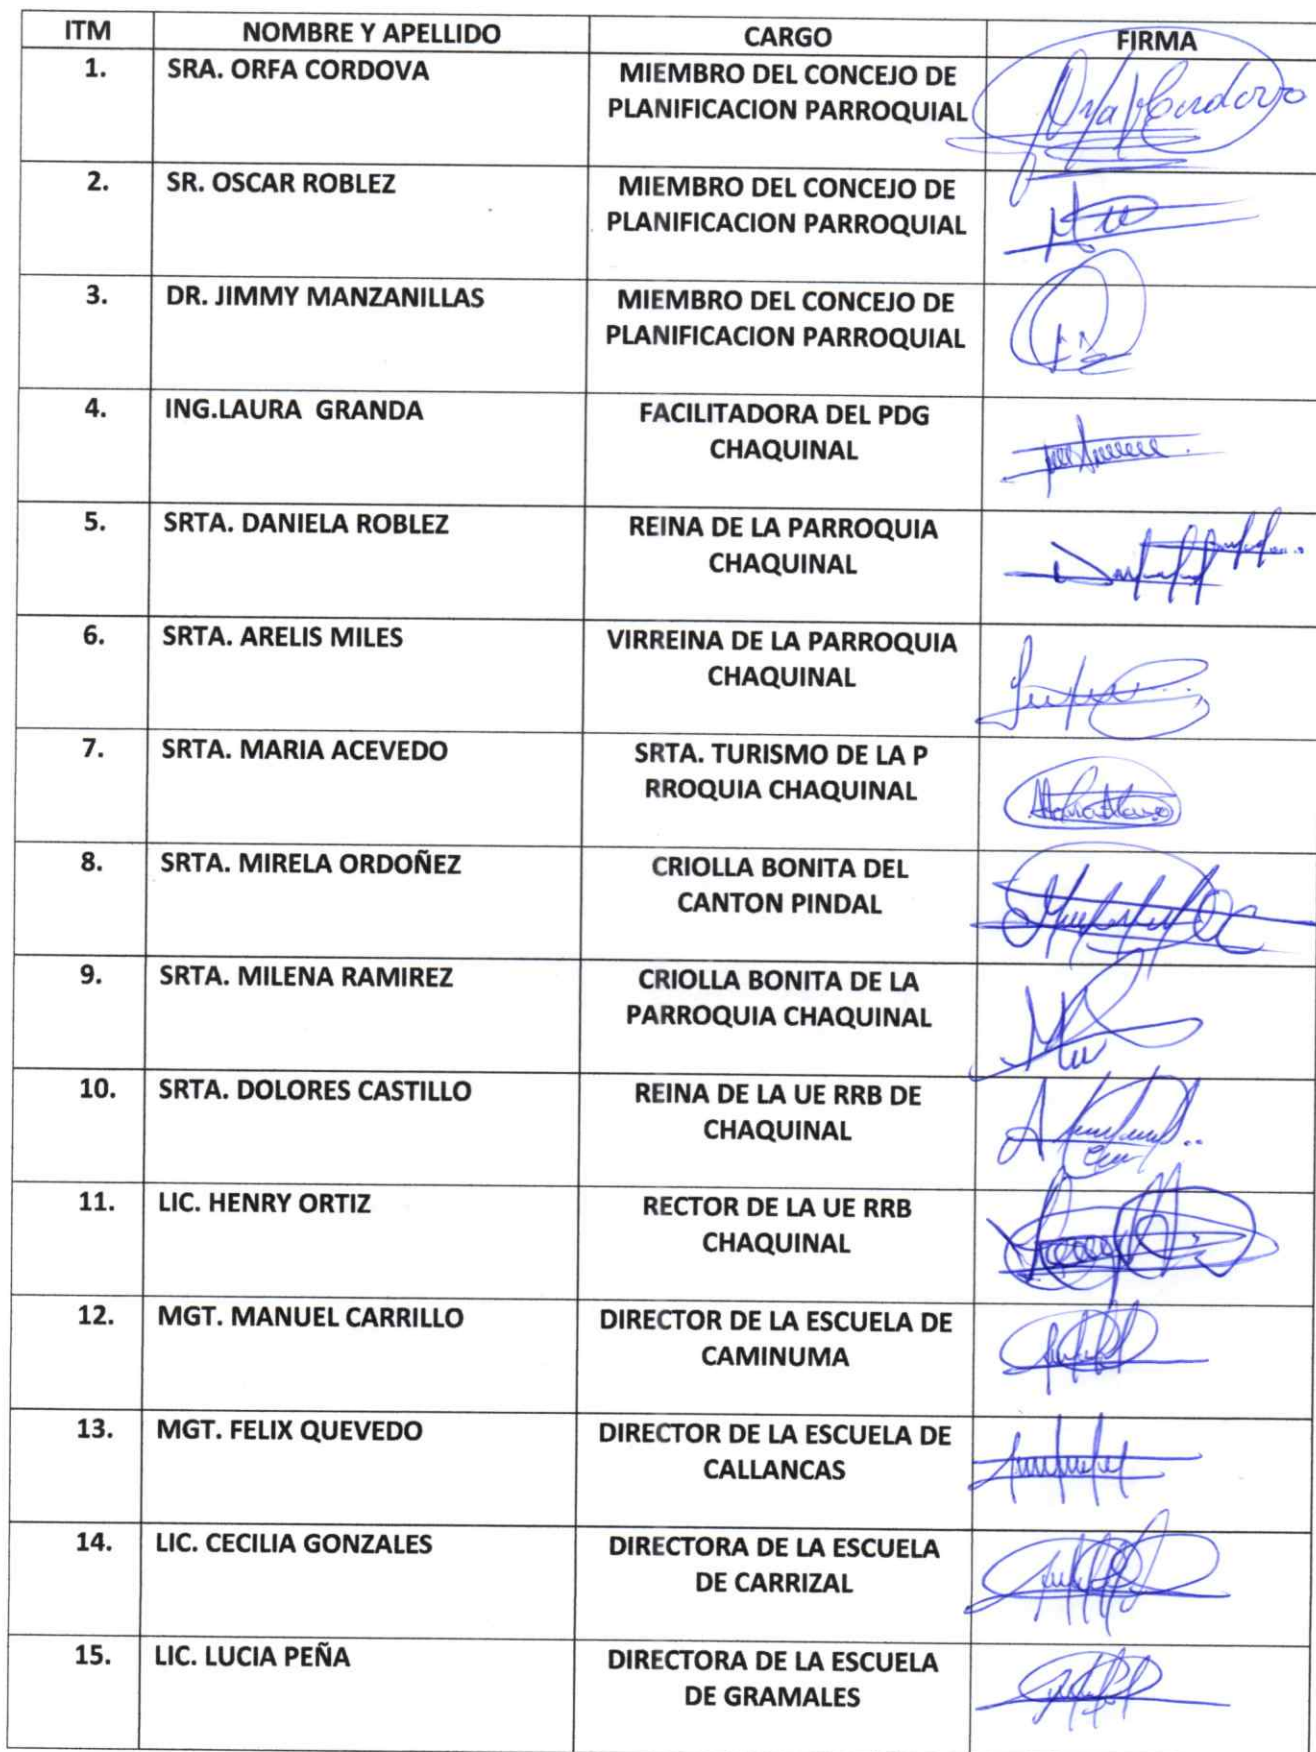 ITM NOMBRE Y APELLIDO CARGO FIRMA
1. SRA. ORFA CORDOVA MIEMBRO DEL CONCEJO DE
PLANIFICACION PARROQUIAL
2. SR. OSCAR ROBLEZ MIEMBRO DEL CONCEJO DE
PLANIFICACION PARROQUIAL
3. DR. JIMMY MANZANILLAS MIEMBRO DEL CONCEJO DE
PLANIFICACION PARROQUIAL
4. ING.LAURA GRANDA FACILITADORA DEL PDG
CHAQUINAL
5. SRTA. DANIELA ROBLEZ REINA DE LA PARROQUIA
CHAQUINAL
6. SRTA. ARELIS MILES VIRREINA DE LA PARROQUIA
CHAQUINAL
7. SRTA. MARIA ACEVEDO SRTA. TURISMO DE LA P
RROQUIA CHAQUINAL
8. SRTA. MIRELA ORDOÑEZ CRIOLLA BONITA DEL
CANTON PINDAL
9. SRTA. MILENA RAMIREZ CRIOLLA BONITA DE LA
PARROQUIA CHAQUINAL
10. SRTA. DOLORES CASTILLO REINA DE LA UE RRB DE
CHAQUINAL
11. LIC. HENRY ORTIZ RECTOR DE LA UE RRB
CHAQUINAL
12. MGT. MANUEL CARRILLO DIRECTOR DE LA ESCUELA DE
CAMINUMA
13. MGT. FELIX QUEVEDO DIRECTOR DE LA ESCUELA DE
CALLANCAS
14. LIC. CECILIA GONZALES DIRECTORA DE LA ESCUELA
DE CARRIZAL
15. LIC. LUCIA PEÑA DIRECTORA DE LA ESCUELA
DE GRAMALES